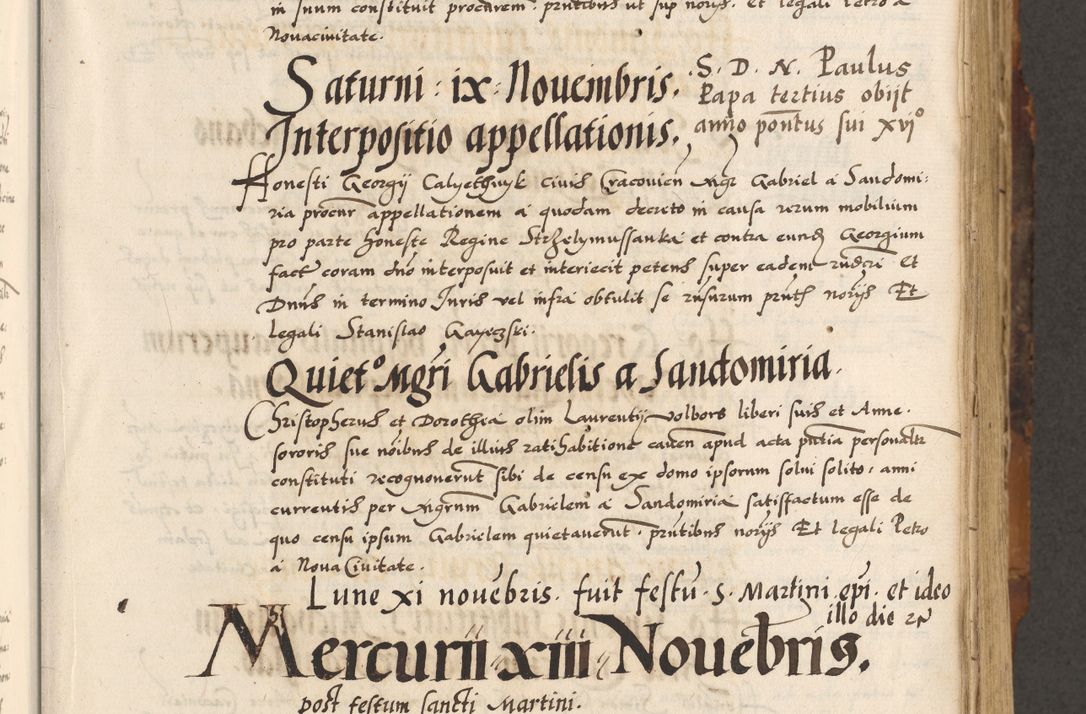 in suum constituit procurem prntibus ut sup norijs. et legali Petro a
Novacivitate.
Saturni : ix : Nouembris.
S. D. N. Paulus
Papa tertius obijt
anno pontus sui xvjº
Interpositio appellationis.
Honesti Georgij Calyethnyk civis Cracovien Mgr Gabriel a Sandomi-
ria procur appellationem a quodam decreto in causa rerum mobilium
pro parte honeste Regine Strzelymussanka et contra eund Georgium
fact coram dno interposuit et interiecit petens super eadem Et
Dnus in termino Juris vel infra obtulit se rnsurum prntb norijs Et
legali Stanislao Gayezski.
Quietº Mgri Gabrielis a Sandomiria.
Christopherus et Dorothea olim Laurentij Volbors liberi suis et Anne
sororis sue noibus de illius ratihabitione caven apud acta pntia personaltr
constituti recognoverunt sibi de censu ex domo ipsorum solui solito, anni
currentis per Mgrum Gabrielem a Sandomiria satisfactum esse de
quo censu ipsum Gabrielem quietaverut. prntibus norijs Et legali Petro
a Nova Civitate.
Lune xi novebris. fuit festu. S. Martini epi. et ideo
illo die
Mercurii xiii Nouebris.
post festum sancti Martini.